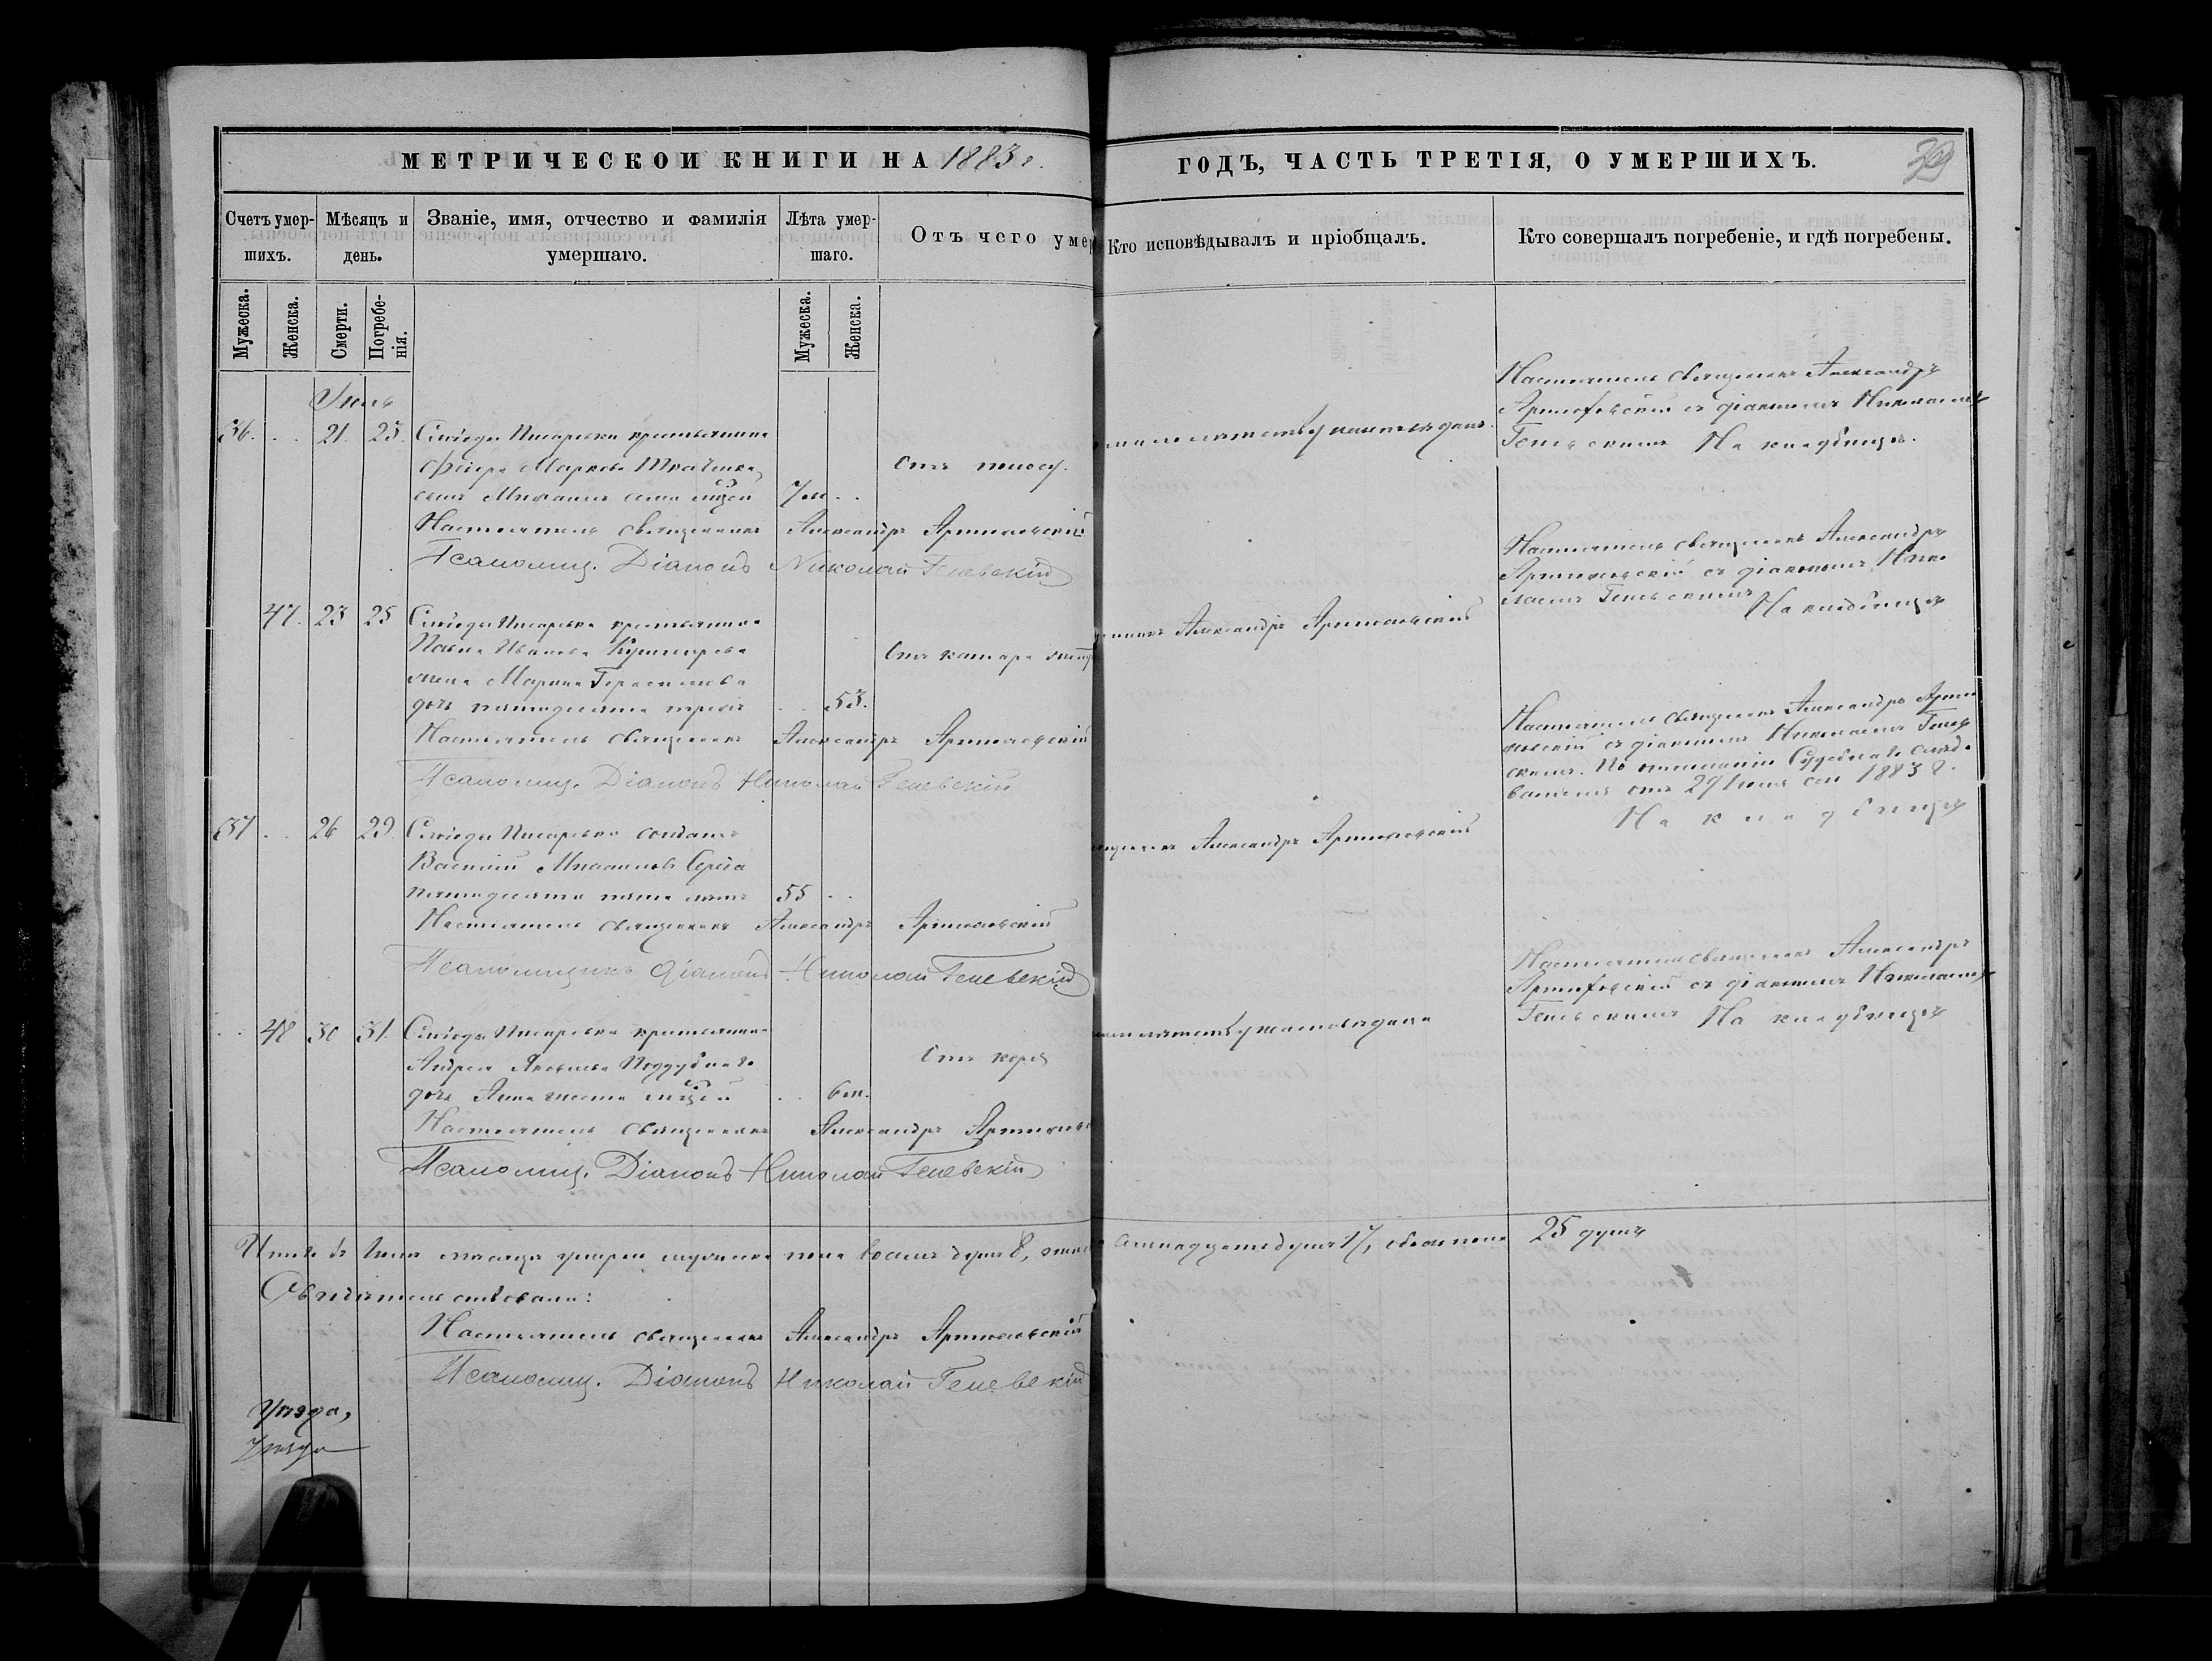 МЕТРИЧЕСКОЙ КНИГИ НА 1883 г.
ГОДЪ, ЧАСТЬ ТРЕТІЯ, О УМЕРШИХЪ.
Счетъ умер-
шихъ.
Мѣсяцъ и
день.
Званіе, имя, отчество и фамилія
умершаго.
Лѣта умер-
шаго.
Отъ чего умер
Кто исповѣдывалъ и пріобщалъ.
Кто совершалъ погребеніе, и гдѣ погребены.
Мужеска.
Женска.
Смерти.
Погребе-
нія.
Мужеска.
Женска.
36. 21. 23. Слободы Писаревки крестьянина
Маркова Ткаченка
сынъ Михаилъ семи 7 м.
Отъ поносу.
Настоятель священникъ Александръ
Артюховскій съ діакономъ Николаемъ
Геневскимъ На кладбищѣ.
Настоятель священникъ Александръ Артюховскій
Псаломщ. Діаконъ Николай Геневскій
47. 23 25 Слободы Писаревки крестьянина
Павла Иванова
жена Марина Герасимова
дочь пятидесяти трехъ 53.
Отъ катара
Александръ Артюховскій
Настоятель священникъ Александръ
Артюховскій съ діакономъ Нико
лаемъ Геневскимъ На кладбищѣ
Настоятель священникъ Александръ Артюховскій
Псаломщ. Діаконъ Николай Геневскій
37 26 29. Слободы Писаревки солдатъ
Василій
пятидесяти пяти лѣтъ 55
Александръ Артюховскій
Настоятель священникъ Александръ Артю
ховскій съ діакономъ Николаемъ Генев
скимъ. По отношенію Судебнаго слѣдо
вателя отъ 29 1883 г.
На кладбищѣ
Настоятель священникъ Александръ Артюховскій
Псаломщикъ діаконъ Николай Геневскій
48 30 31. Слободы Писаревки крестьянина
Андрея Яковлева Поддубнаго
дочь Анна шести 6 м.
Отъ кори
Настоятель священникъ Александръ
Артюховскій съ діакономъ Николаемъ
Геневскимъ На кладбищѣ
Настоятель священникъ Александръ
Псаломщ. Діаконъ Николай Геневскій
Итого въ мѣсяцѣ умерло мужеска пола восемь душъ 8, семнадцать душъ 17, обоего пола 25 душъ
Свидѣтельствовали:
Настоятель священникъ Александръ Артюховскій
Псаломщ. Діаконъ Николай Геневскій
Уѣзда,